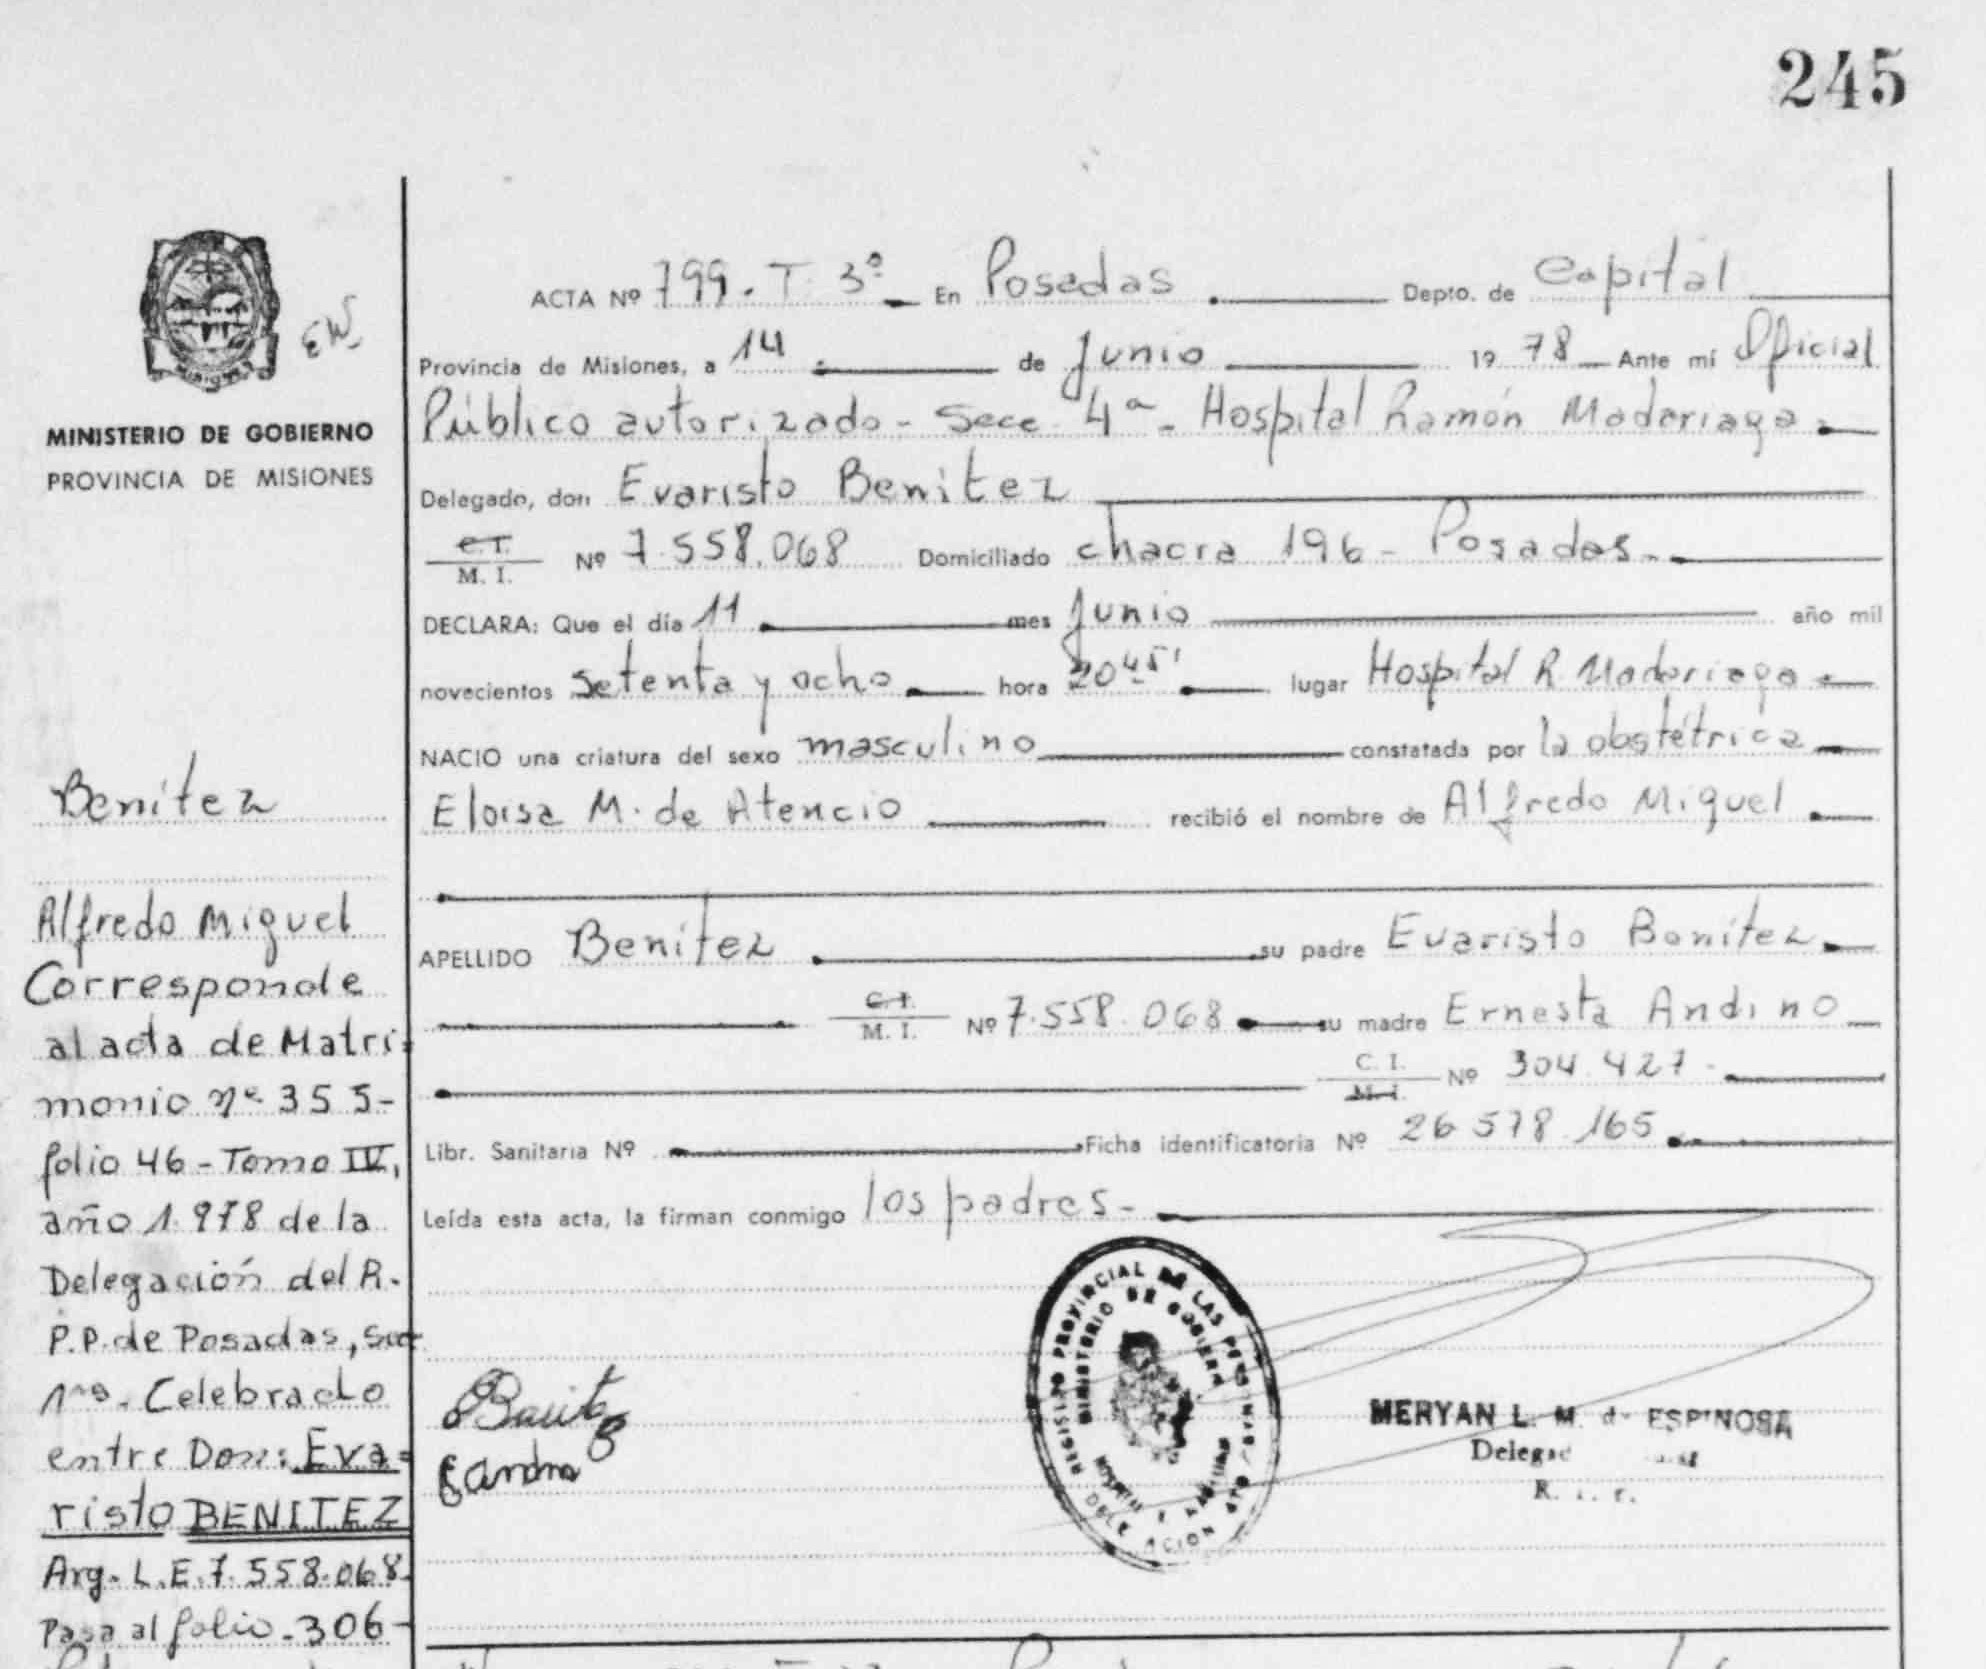 245
MISIONES
MINISTERIO DE GOBIERNO
PROVINCIA DE MISIONES
ACTA Nº 799. T 3º En Posadas Depto. de Capital
Provincia de Misiones, a 14 de Junio 19 78 Ante mí Oficial
Público autorizado - Secc 4ª - Hospital Ramón Madariaga
Delegado, don Evaristo Benitez
C.I.
M. I. Nº 7.558.068 Domiciliado chacra 196 - Posadas.
DECLARA: Que el día 11 mes Junio año mil
novecientos setenta y ocho hora 20 45' lugar Hospital R. Madariaga
NACIO una criatura del sexo masculino constatada por la obstétrica
Eloisa M. de Atencio recibió el nombre de Alfredo Miguel
APELLIDO Benítez su padre Evaristo Benítez
C.I.
M. I. Nº 7.558.068 su madre Ernesta Andino
C. I.
M. I. Nº 304.427
Libr. Sanitaria Nº Ficha identificatoria Nº 26 578.165
Leída esta acta, la firman conmigo los padres -
Benítez
Alfredo Miguel
Corresponde
al acta de Matri=
monio nº 355-
folio 46 - Tomo IV,
año 1.978 de la
Delegación del R.
P.P. de Posadas,
1ra. Celebrado
entre Don: Eva=
risto BENITEZ
Arg. L.E. 7.558.068
Pasa al folio - 306-
REGISTRO PROVINCIAL DE LAS PERSONAS
MINISTERIO DE GOBIERNO
MERYAN L. M. de ESPINOSA